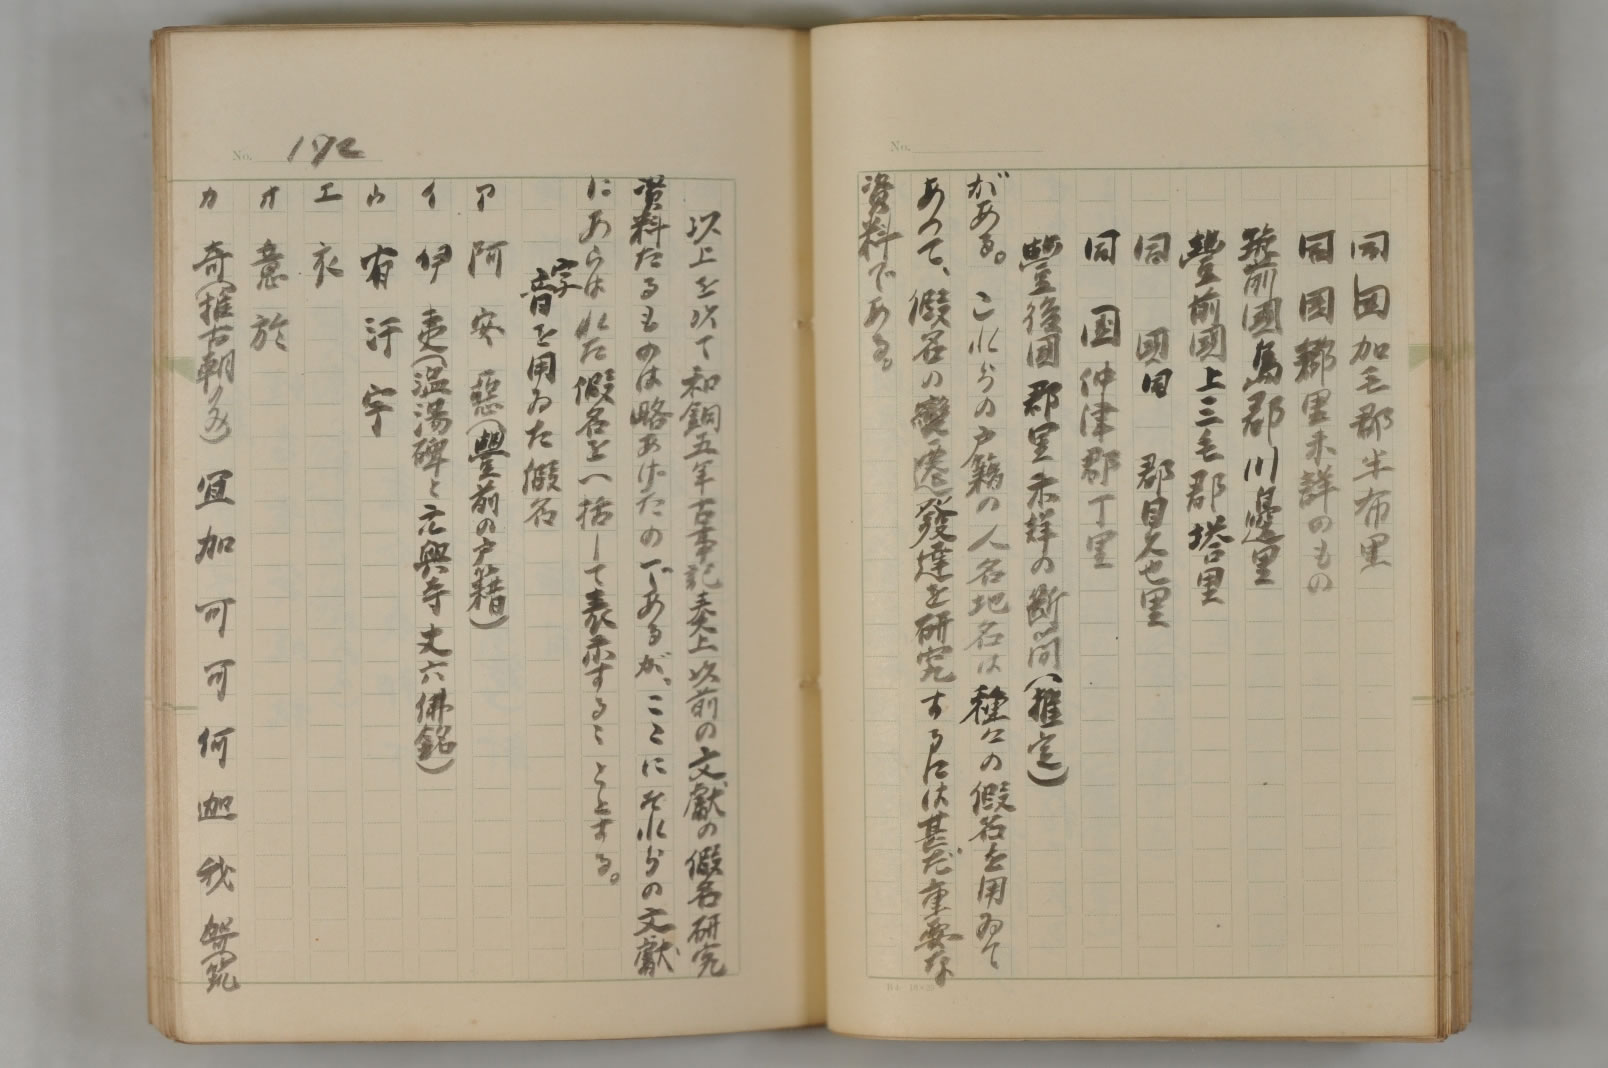 No.
同國加毛郡半布里
同國郡里未詳のもの
筑前國嶋郡川邊里
豐前國上三毛郡塔里
同 國同 郡自久也里
同 國仲津郡丁里
豐後國郡里未詳の断簡(推定)
がある。これらの戸籍の人名地名は種々の假名を用ゐて
あつて、假名の變遷發達を研究するには甚だ重要な
資料である。
B4 10×20
No. 192
以上を以て和銅五年古事記奏上以前の文獻の假名研究
資料たるものは略あげたのであるが、ここにそれらの文獻
にあらはれた假名を一括して表示することとする。
字音を用ゐた假名
ア 阿 安 惡(豐前の戸籍)
イ 伊 夷(温湯碑と元興寺丈六佛銘)
ウ 有 汙 宇
エ 衣
オ 意 於
カ 奇(推古朝のみ) 宜 加 可 可 何 迦 我 賀(筑